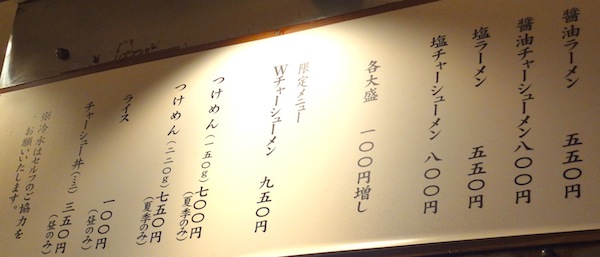 醤油ラーメン 五五〇円
醤油チャーシューメン 八〇〇円
塩ラーメン 五五〇円
塩チャーシューメン 八〇〇円
各大盛 一〇〇円増し
限定メニュー
Wチャーシューメン 九五〇円
つけめん(一五〇g) 七〇〇円
(夏季のみ)
つけめん(二二〇g) 七五〇円
(夏季のみ)
ライス 一〇〇円
(昼のみ)
チャーシュー丼(ミニ) 三五〇円
(昼のみ)
※冷水はセルフのご協力を
お願いいたします。